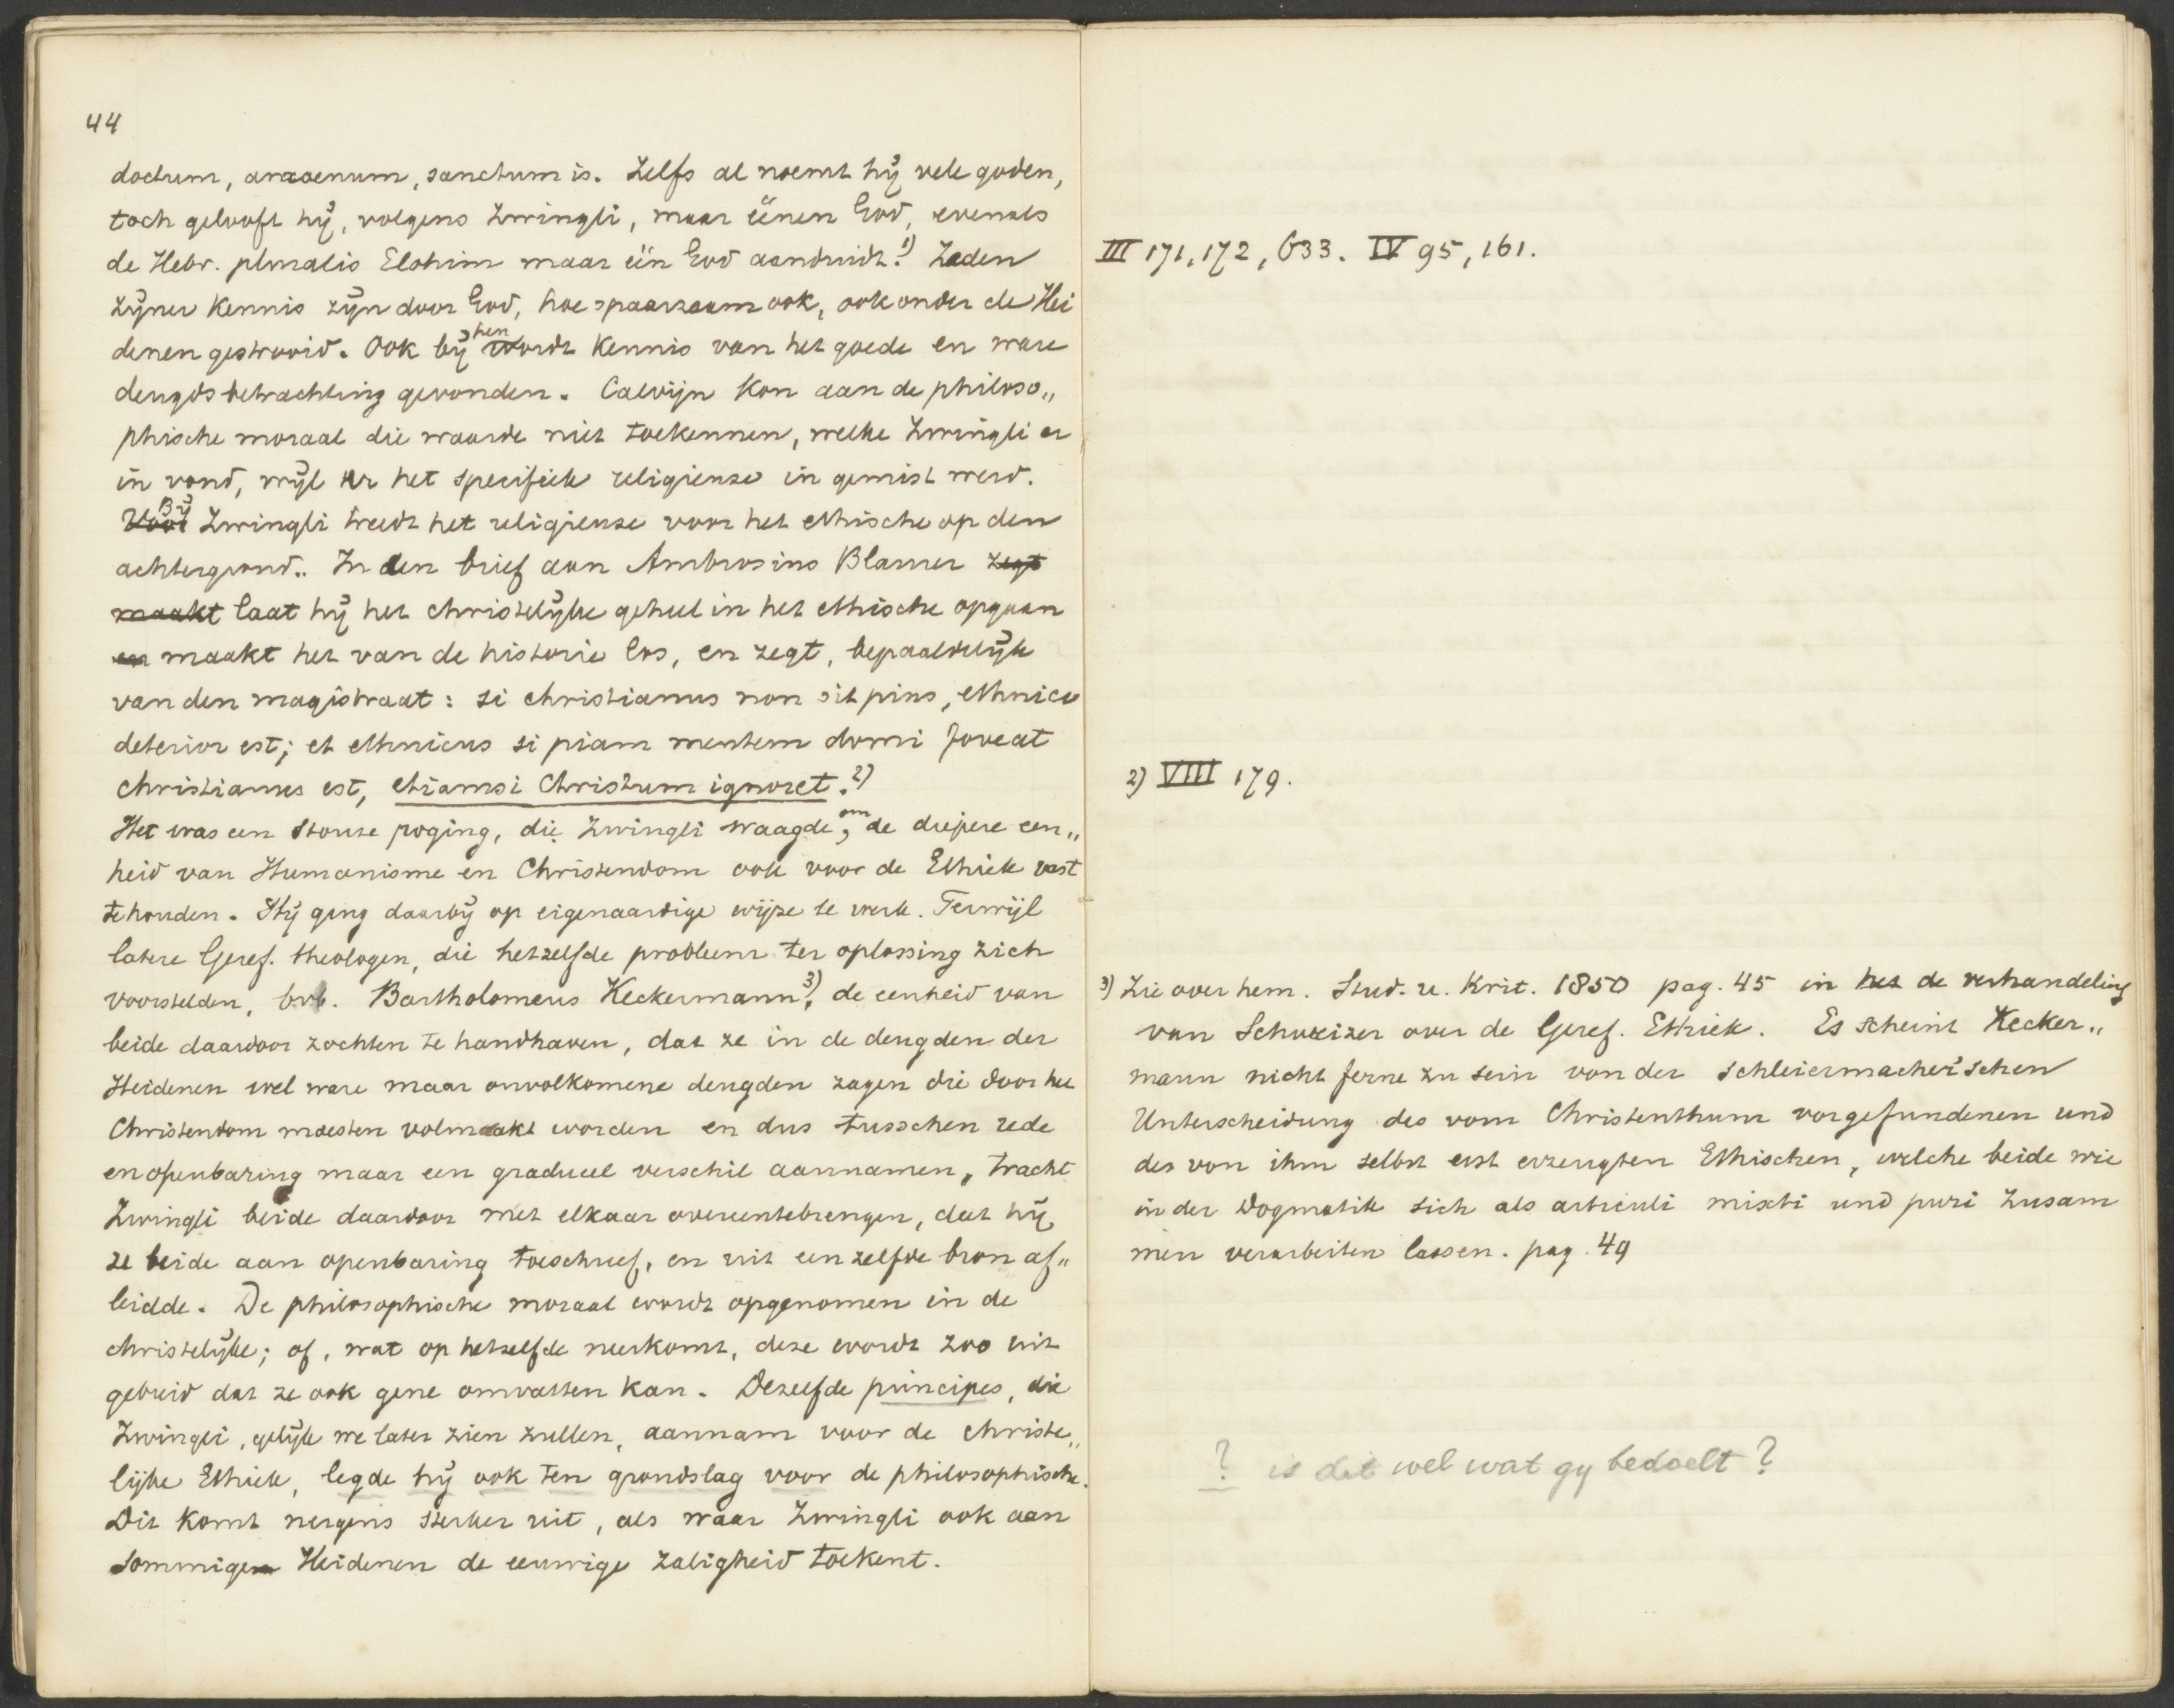 44
doctum, amoenum, sanctum is. Zelfs al noemt hij vele goden,
toch gelooft hij, volgens Zwingli, maar éénen God, evenals
de Hebr. pluralis Elohim maar één God aanduidt.1) Zaden
zijner kennis zijn door God, hoe spaarzaam ook, ook onder de Hei
denen gestrooid. Ook bij hen wordt kennis van het goede en ware
deugdsbetrachting gevonden. Calvijn kon aan de philoso„
phische moraal die waarde niet toekennen, welke Zwingli er
in vond, wijl er het specifiek religieuse in gemist werd.
Voor Bij Zwingli treedt het religieuse voor het ethische op den
achtergrond. In den brief aan Ambrosius Blaurer zegt
maakt laat hij het christelijke geheel in het ethische opgaan
en maakt het van de historie los, en zegt, bepaaldelijk
van den magistraat: si christianus non sit pius, ethnico
deterior est; et ethnicus si piam mentem domi foveat
christianus est, etiamsi Christum ignoret.2)
Het was een stoute poging, die Zwingli waagde, om de diepere een„
heid van Humanisme en Christendom ook voor de Ethiek vast
te houden. Hij ging daarbij op eigenaardige wijze te werk. Terwijl
latere Geref. theologen, die hetzelfde probleem ter oplossing zich
voorstelden, bvb. Bartholomeus Keckermann3), de eenheid van
beide daardoor zochten te handhaven, dat ze in de deugden der
Heidenen wel ware maar onvolkomene deugden zagen die door het
Christendom moesten volmaakt worden en dus tusschen rede
en openbaring maar een gradueel verschil aannamen, tracht
Zwingli beide daardoor met elkaar overeentebrengen, dat hij
ze beide aan openbaring toeschreef, en uit een zelfde bron af„
leidde. De philosophische moraal wordt opgenomen in de
christelijke; of, wat op hetzelfde neerkomt, deze wordt zoo uit
gebreid dat ze ook gene omvatten kan. Dezelfde principes, die
Zwingli, gelijk we later zien zullen, aannam voor de christe„
lijke Ethiek, legde hij ook ten grondslag voor de philosophische.
Dit komt nergens sterker uit, als waar Zwingli ook aan
sommigen Heidenen de eeuwige zaligheid toekent.
III 171, 172, 633. IV 95, 161.
2) VIII 179.
3) Zie over hem. Stud. u. Krit. 1850 pag. 45 in het de verhandeling
van Schweizer over de Geref. Ethiek. Es scheint Kecker„
mann nicht ferne zu sein von der Schleiermacher'schen
Unterscheidung des vom Christenthum vorgefundenen und
des von ihm selbst erst erzeugten Ethischen, welche beide wie
in der Dogmatik sich als articuli mixti und puri zusam
men verarbeiten lassen. pag. 49
? is dit wel wat gy bedoelt?